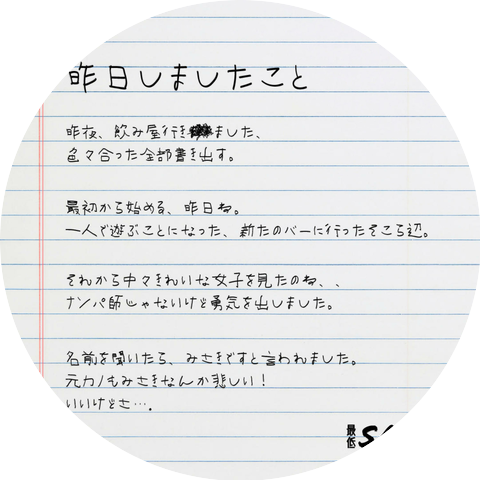 昨日しましたこと
昨夜、飲み屋行きました、
色々合った全部書き出す。
最初から始める、昨日ね。
一人で遊ぶことになった、新たのバーに行ったそこら辺。
それから中々きれいな女子を見たのね、、
ナンパ師じゃないけど勇気を出しました。
名前を聞いたら、みさきですと言われました。
元カノもみさきなんか悲しい！
いいけどさ…．
最低